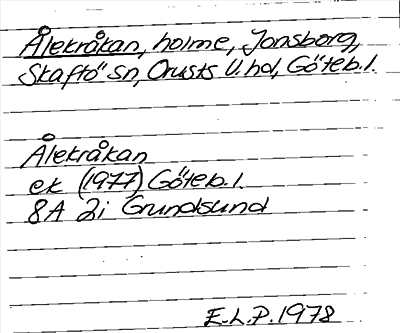 Ålekråkan, holme, Jonsborg,
Skaftö sn, Orusts V. hd, Göteb. l.
Ålekråkan
ek (1977) Göteb. l.
8A 2i Grundsund
E.L.P. 1978